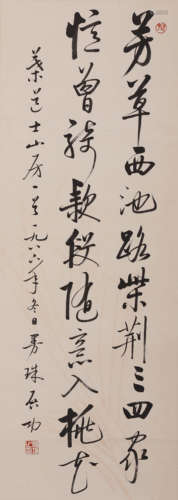 芳草西池路柴荆三四家
忆曾骑款段随意入桃花
叶道士山房一首一九八六年冬日 启功